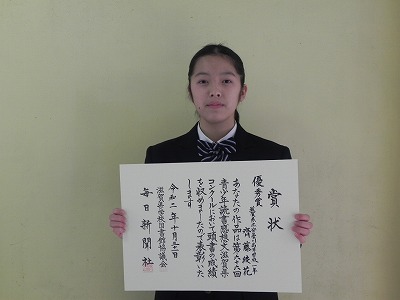 賞状
優秀賞
齊藤 綾花
あなたの作品は第六六回
青少年読書感想文滋賀県
コンクールにおいて頭書の成績
を収めましたので表彰いた
します
令和二年十月三十一日
滋賀県学校図書館協議会
毎日新聞社